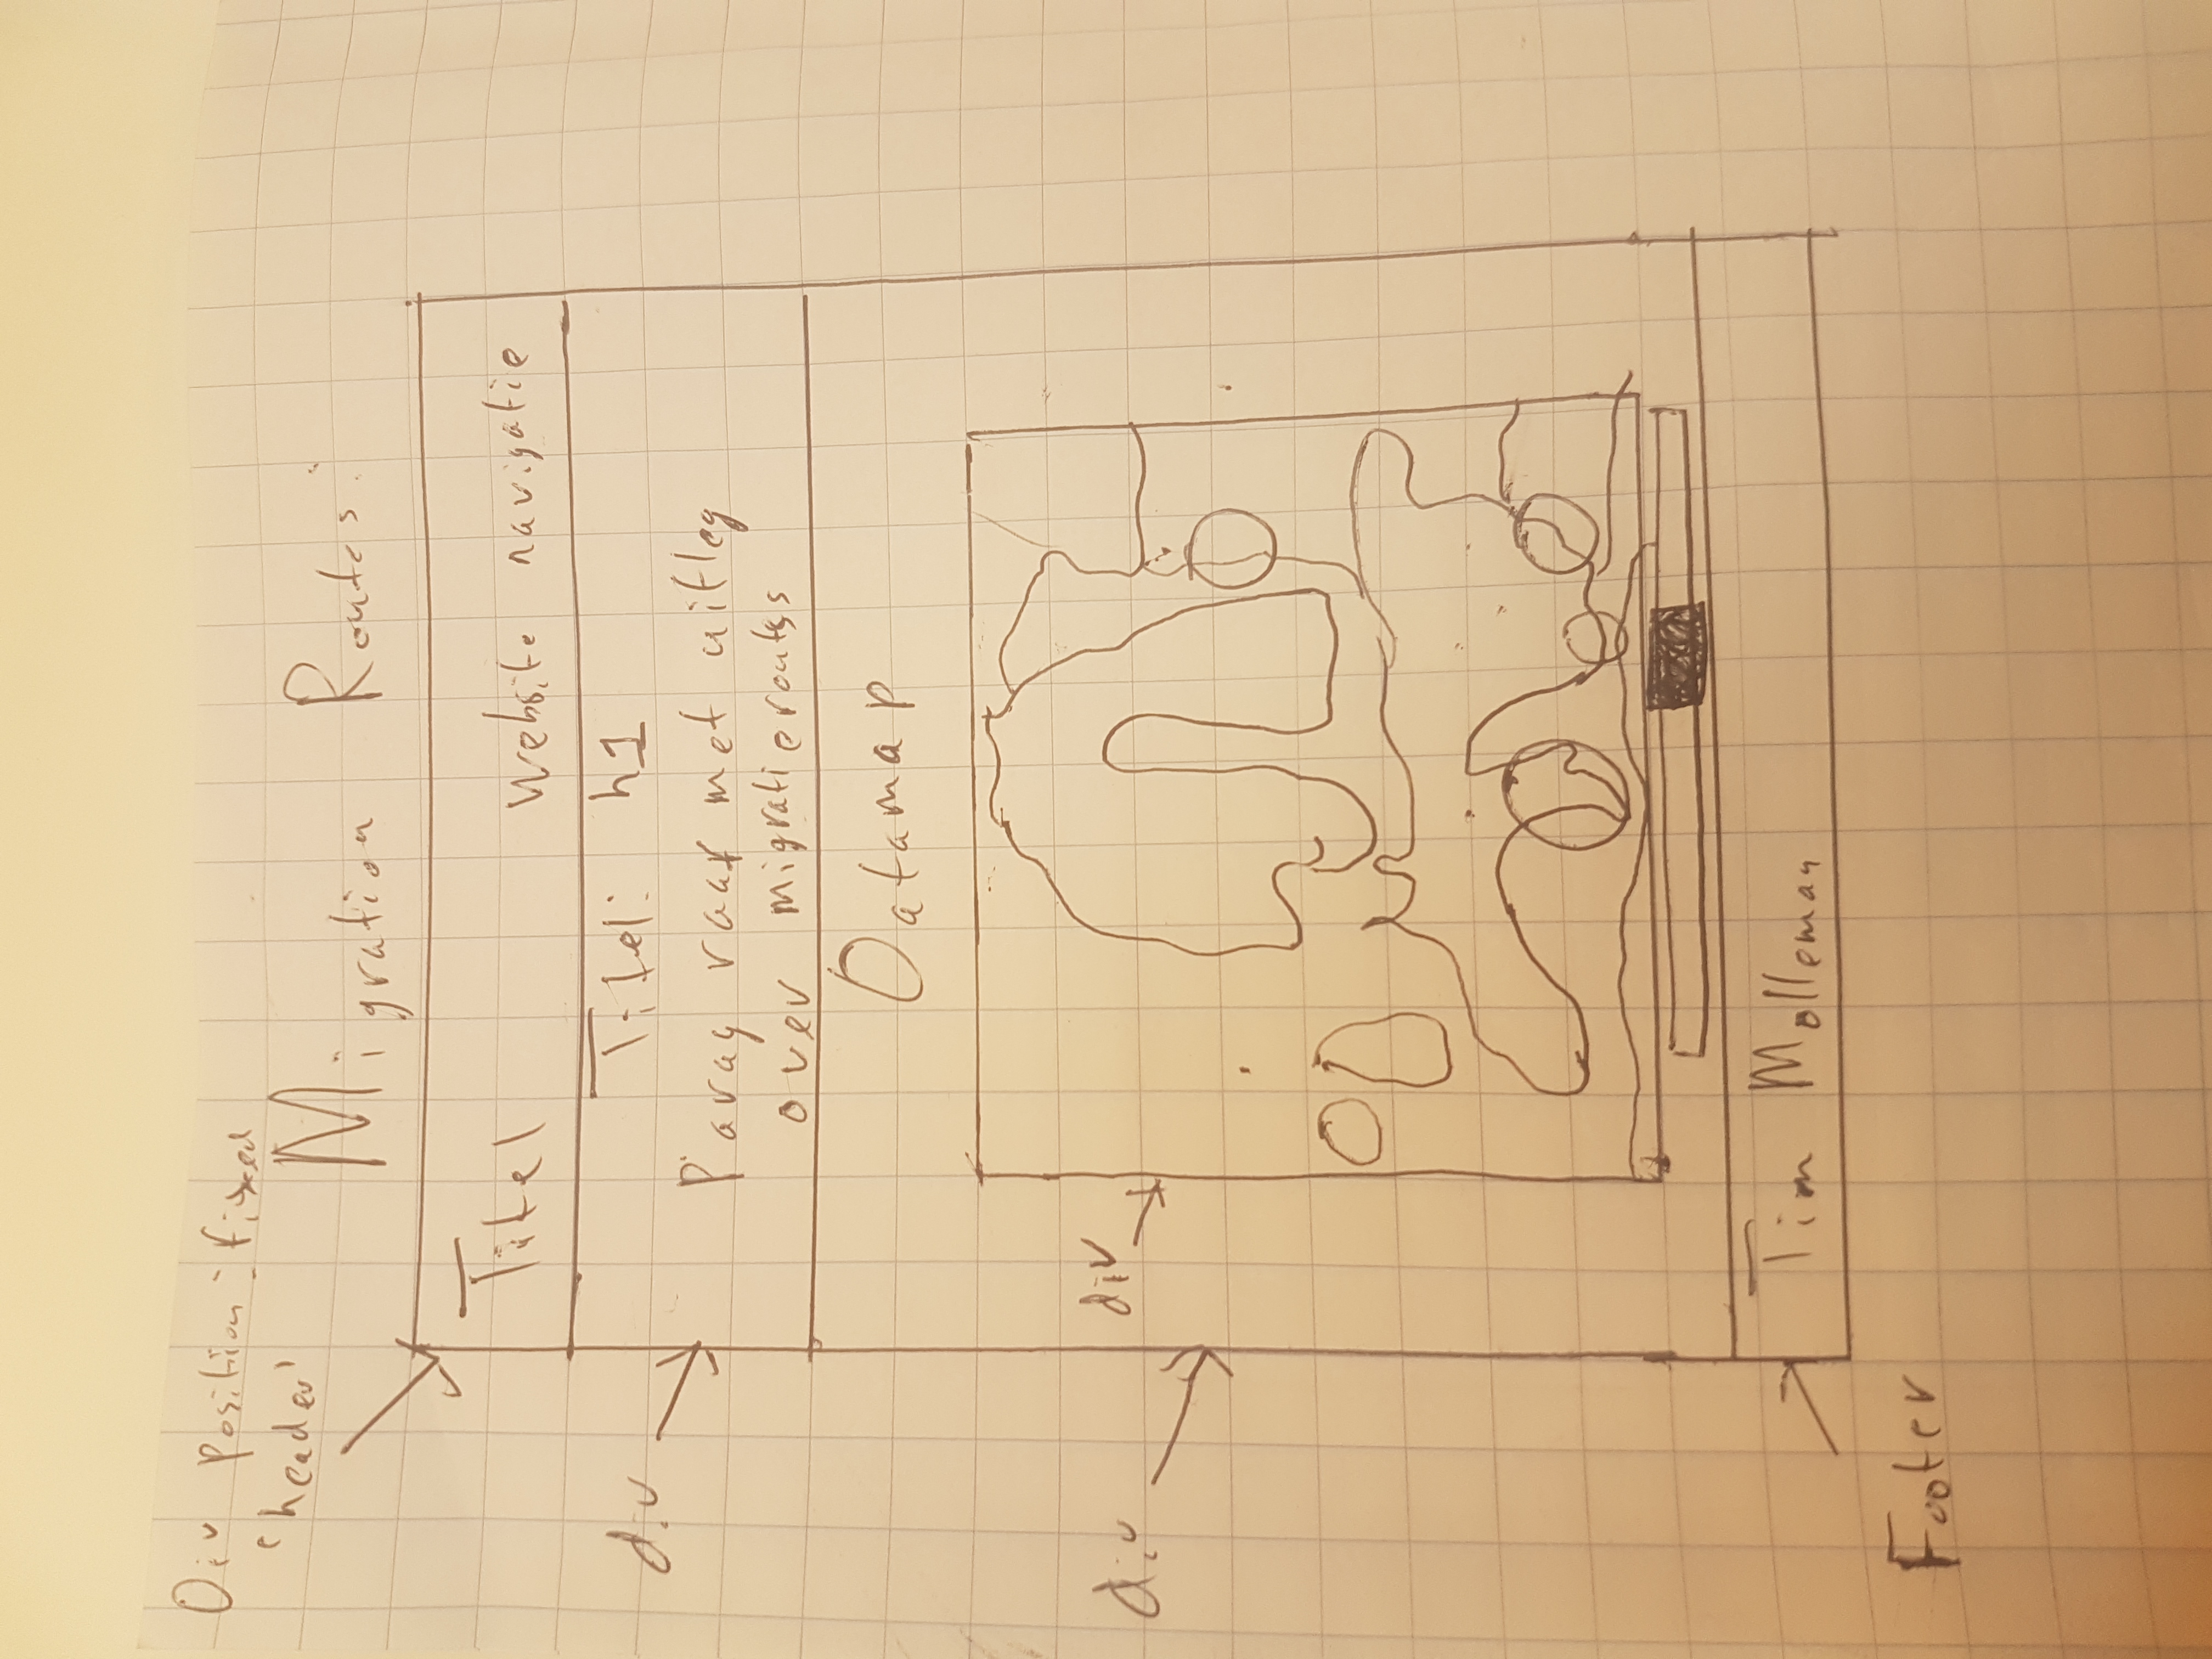 Div position: fixed
'header'
Migration Routes:
Titel website navigatie
div
Titel: h1
Paragraaf met uitleg
over migratieroutes
Datamap
div
div
Tim Molleman
Footer